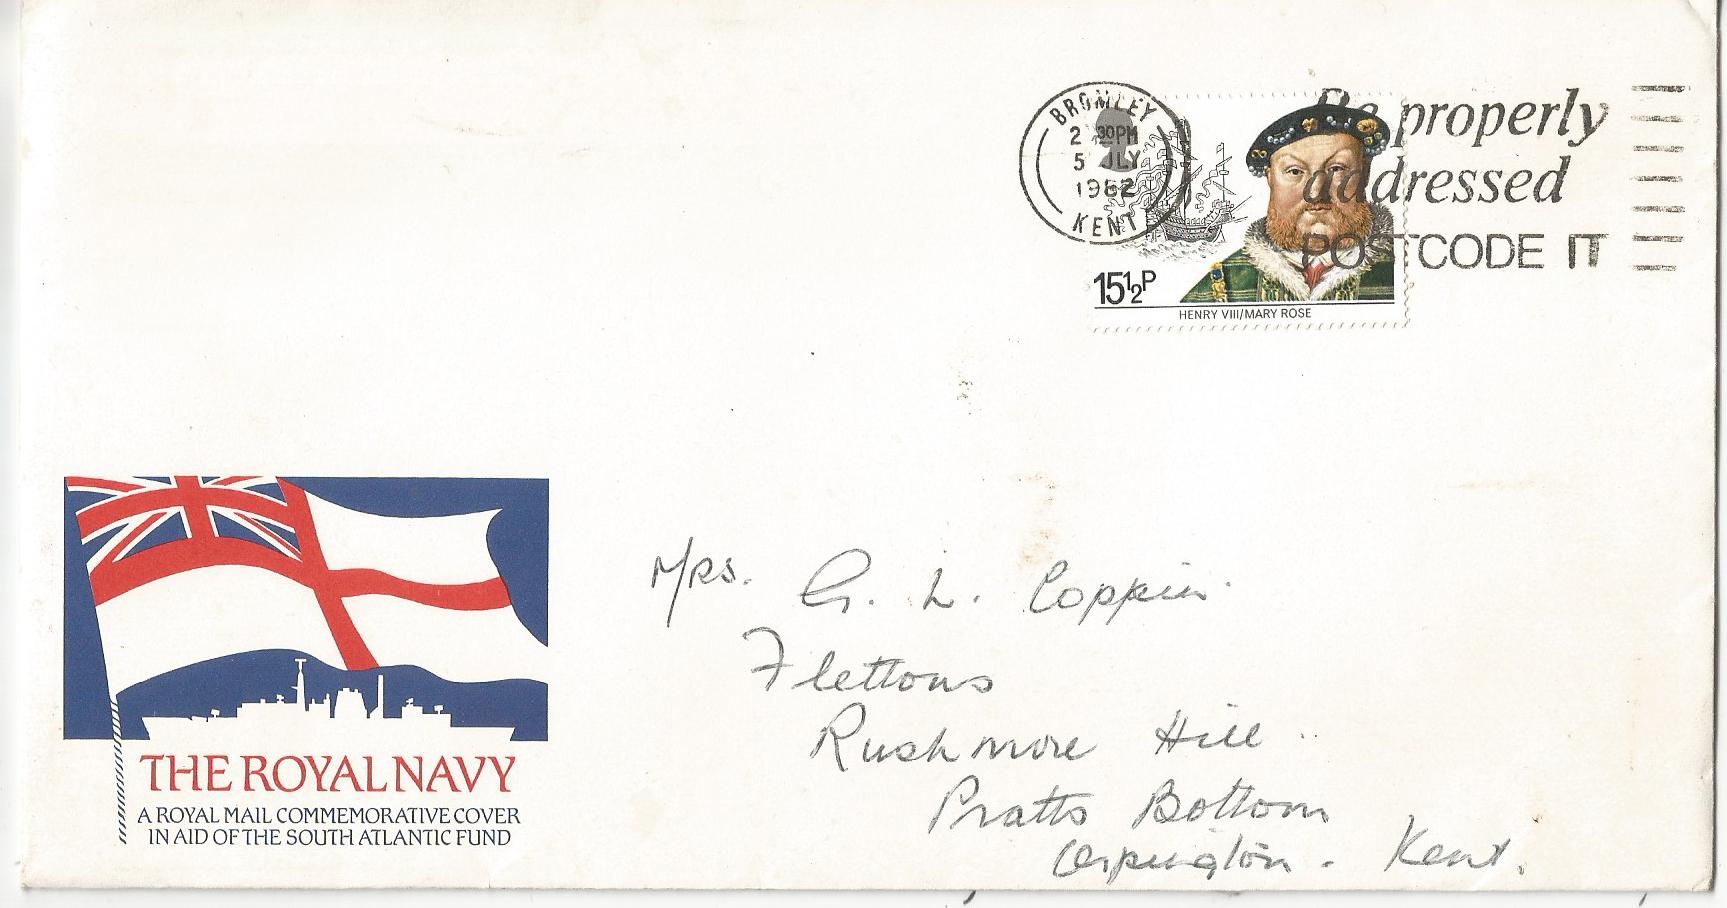 BROMLEY
2 30PM
5 JLY
1982
KENT
Be properly
addressed
POSTCODE IT
15½P
HENRY VIII/MARY ROSE
Mrs. G. L. Coppin.
Flettons
Rushmore Hill.
Pratts Bottom
Orpington. Kent.
THE ROYAL NAVY
A ROYAL MAIL COMMEMORATIVE COVER
IN AID OF THE SOUTH ATLANTIC FUND